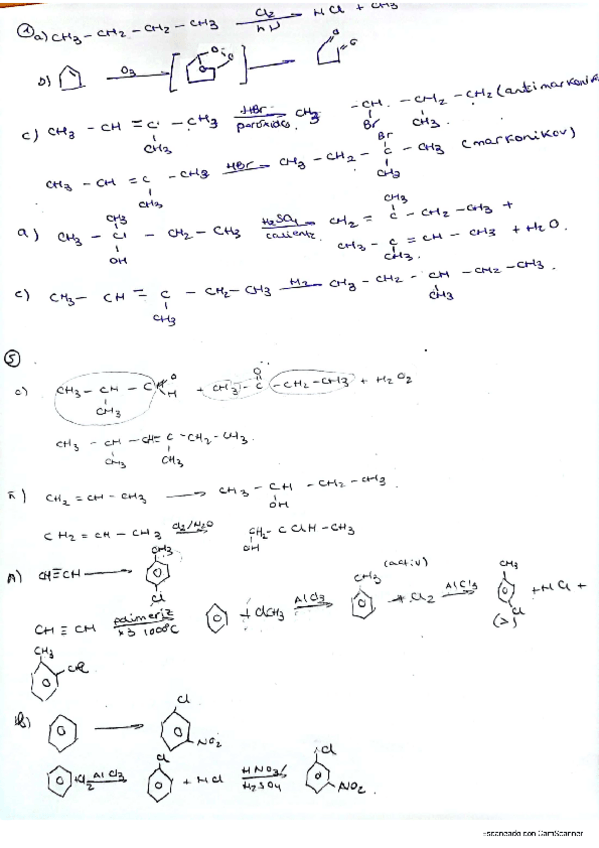 ① a) CH3 - CH2 - CH2 - CH3 Cl2 hν HCl + CH3
b) O3
c) CH3 - CH = C - CH3 HBr peróxidos CH3 - CH - CH2 - CH2 (antimarkoni
CH3 Br CH3
CH3 - CH = C - CH3 HBr CH3 - CH2 - C - CH3 (markonikov)
CH3 Br CH3
a) CH3 - C - CH2 - CH3 H2SO4 caliente CH2 = C - CH2 - CH3 +
CH3 OH CH3
CH3 - C = CH - CH3 + H2O.
CH3
c) CH3 - CH = C - CH2 - CH3 H2 CH3 - CH2 - CH - CH2 - CH3.
CH3 CH3
⑤
c) CH3 - CH - C O H + CH3 - C - CH2 - CH3 + H2O2
CH3 O
CH3 - CH - CH = C - CH2 - CH3.
CH3 CH3
CH2 = CH - CH3 CH3 - CH - CH2 - CH3.
OH
CH2 = CH - CH3 Cl2/H2O CH2 - CClH - CH3
OH
CH≡CH CH3 Cl
(activ)
CH ≡ CH x3 1000ºC + ClCH3 AlCl3 CH3 + Cl2 AlCl3 CH3 Cl + HCl +
(>)
CH3 Cl
b) Cl NO2
Cl2 AlCl3 Cl + HCl HNO3/ H2SO4 Cl NO2.
Escaneado con CamScanner